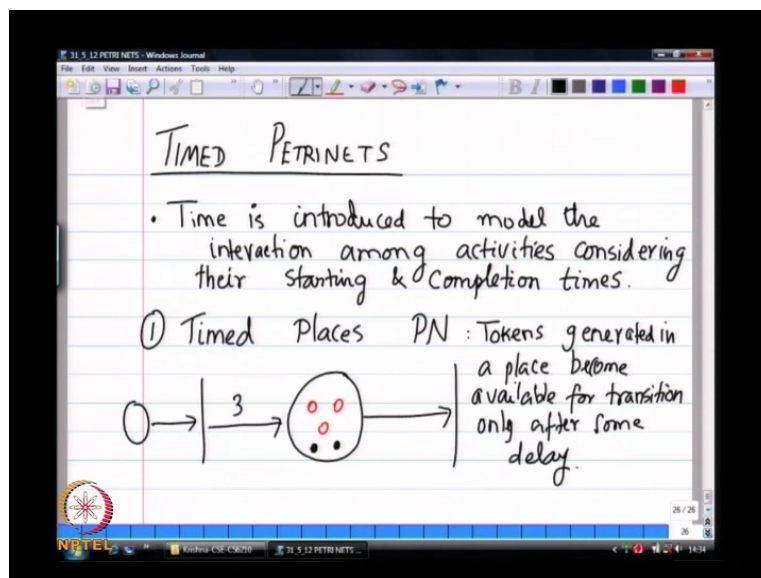 31_5_12 PETRI NETS - Windows Journal
File Edit View Insert Actions Tools Help
B I
TIMED PETRINETS
• Time is introduced to model the
interaction among activities considering
their starting & completion times.
① Timed Places PN : Tokens generated in
a place become
available for transition
only after some
delay.
3
26 / 26
26
NPTEL
Krishna-CSE-CS6210
31_5_12 PETRI NETS ...
14:34